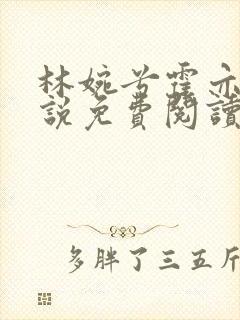 林婉兮霍亦
說免費閱讀
多胖了三五斤